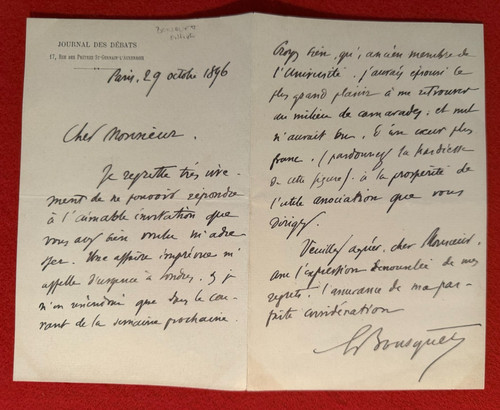 JOURNAL DES DÉBATS
17, RUE DES PRÊTRES ST-GERMAIN-L'AUXERROIS
Paris, 29 octobre 1896
Cher Monsieur.
Je regrette très vive-
ment de ne pouvoir répondre
à l'aimable invitation que
vous avez bien voulu m'adres
ser. Une affaire imprévue m'
appelle d'urgence à Londres, & je
n'en reviendrai que dans le cou-
rant de la semaine prochaine.
Croyez bien, qu', ancien membre de
l'Université, j'aurais éprouvé le
plus grand plaisir à me retrouver
au milieu de camarades; et nul
n'aurait bu, d'un cœur plus
franc, (pardonnez la hardiesse
de cette figure) à la prospérité de
l'utile association que vous
dirigez.
Veuillez agréer, cher Monsieur,
avec l'expression renouvelée de mes
regrets, l'assurance de ma par-
faite considération
Bousquet